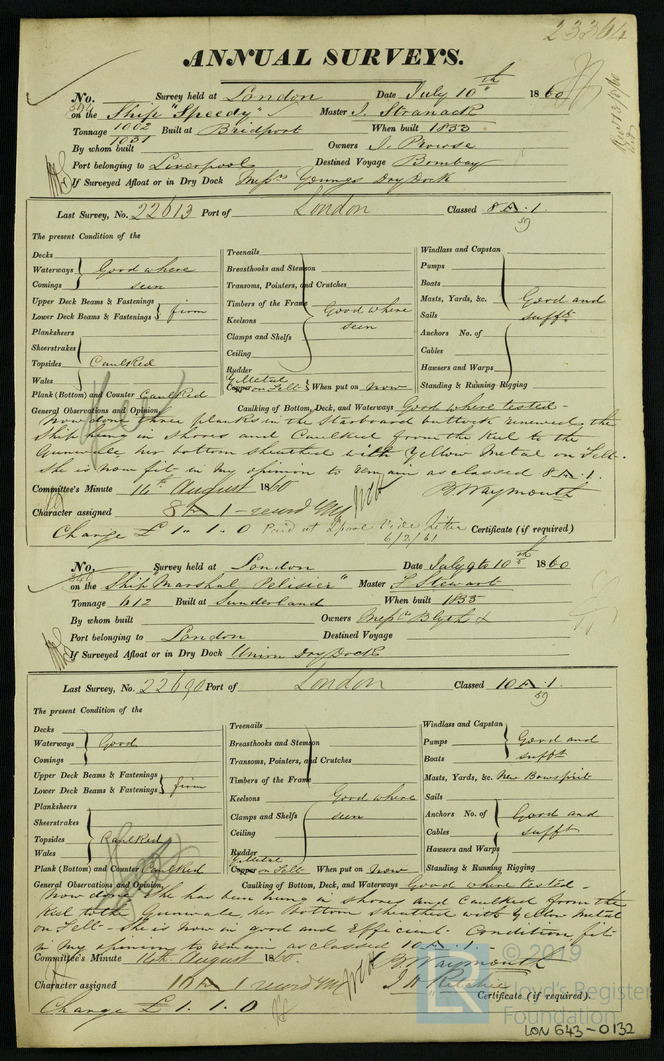 23364
ANNUAL SURVEYS.
No. 394 Survey held at London Date July 10th 1860
on the Ship "Speedy" Master J. Stranack
Tonnage 1002 1031 Built at Bridport When built 1853
By whom built Owners J. Prowse
Port belonging to Liverpool Destined Voyage Bombay
If Surveyed Afloat or in Dry Dock Messrs Youngs Dry Dock
Last Survey, No. 22613 Port of London Classed 8 A. 1.
59
The present Condition of the
Decks
Waterways Good where
Comings seen
Upper Deck Beams & Fastenings
Lower Deck Beams & Fastenings firm
Planksheers
Sheerstrakes
Topsides Caulked
Wales
Plank (Bottom) and Counter Caulked
Treenails
Breasthooks and Stemson
Transoms, Pointers, and Crutches
Timbers of the Frame Good where
Keelsons seen
Clamps and Shelfs
Ceiling
Rudder
Y Metal
Copper on Felt When put on Now
Windlass and Capstan
Pumps
Boats
Masts, Yards, &c. Good and
Sails sufft
Anchors No. of
Cables
Hawsers and Warps
Standing & Running Rigging
General Observations and Opinion, Caulking of Bottom, Deck, and Waterways Good where tested -
Now done three planks in the Starboard buttock renewed, the
Ship hung in shores and Caulked from the Keel to the
Gunwale her bottom sheathed with Yellow Metal on Felt.
She is now fit in my opinion to remain as classed 8 A. 1.
Committee's Minute 14th August 1860 B. Waymouth
Character assigned 8 A 1 -
Charge £ 1. 1. 0 Paid at Lpool Vide letter Certificate (if required)
6/2/61
No. Survey held at London Date July 9 to 10th 1860
on the Ship Marshal Pelisier" Master Stewart
Tonnage 612 Built at Sunderland When built 1855
By whom built Owners Messrs Blyth &
Port belonging to London Destined Voyage
If Surveyed Afloat or in Dry Dock Union Dry Dock
Last Survey, No. 22690 Port of London Classed 10 A. 1.
59
The present Condition of the
Decks
Waterways Good
Comings
Upper Deck Beams & Fastenings
Lower Deck Beams & Fastenings firm
Planksheers
Sheerstrakes
Topsides Caulked
Wales
Plank (Bottom) and Counter Caulked
Treenails
Breasthooks and Stemson
Transoms, Pointers, and Crutches
Timbers of the Frame
Keelsons Good where
Clamps and Shelfs seen
Ceiling
Rudder
Y Metal
Copper on Felt When put on Now
Windlass and Capstan
Pumps Good and
Boats sufft
Masts, Yards, &c. New Bowsprit
Sails
Anchors No. of Good and
Cables sufft
Hawsers and Warps
Standing & Running Rigging
General Observations and Opinion, Caulking of Bottom, Deck, and Waterways Good where tested -
Now done She has been hung in shores and Caulked from the
Keel to the Gunwale, her bottom sheathed with Yellow Metal
on Felt - She is now in good and Efficient Condition fit
in my opinion to remain as classed 10 A. 1.
Committee's Minute 14th August 1860. B. Waymouth
Character assigned 10 A 1 J H Ritchie
Charge £ 1. 1. 0 Certificate (if required).
© 2019
Lloyd's Register
Foundation
LON 643-0132